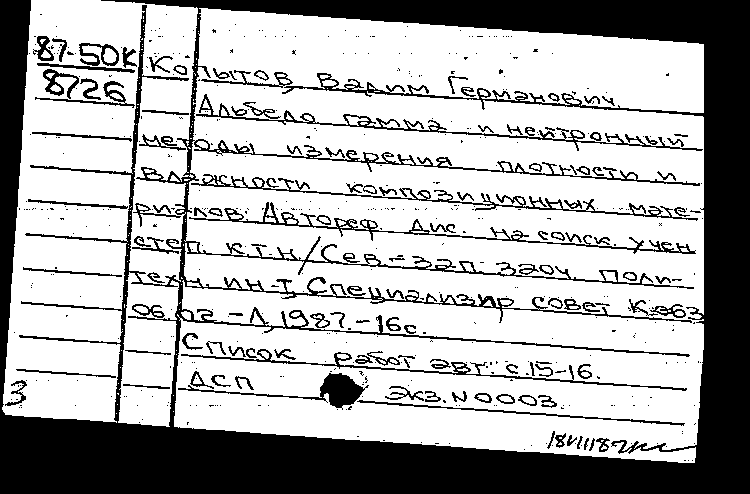 87-50К
8726
Копытов Вадим Германович.
Альбедо гамма и нейтронный
методы измерения плотности и
влажности композиционных мате-
риалов: Автореф. дис. на соиск. учен
степ. к.т.н/Сев.-зап. заоч. поли-
техн. ин-т, Специализир совет К.063
06.02 -Л, 1987.-16с.
Список работ авт.: с.15-16.
ДСП экз. N 0003.
3